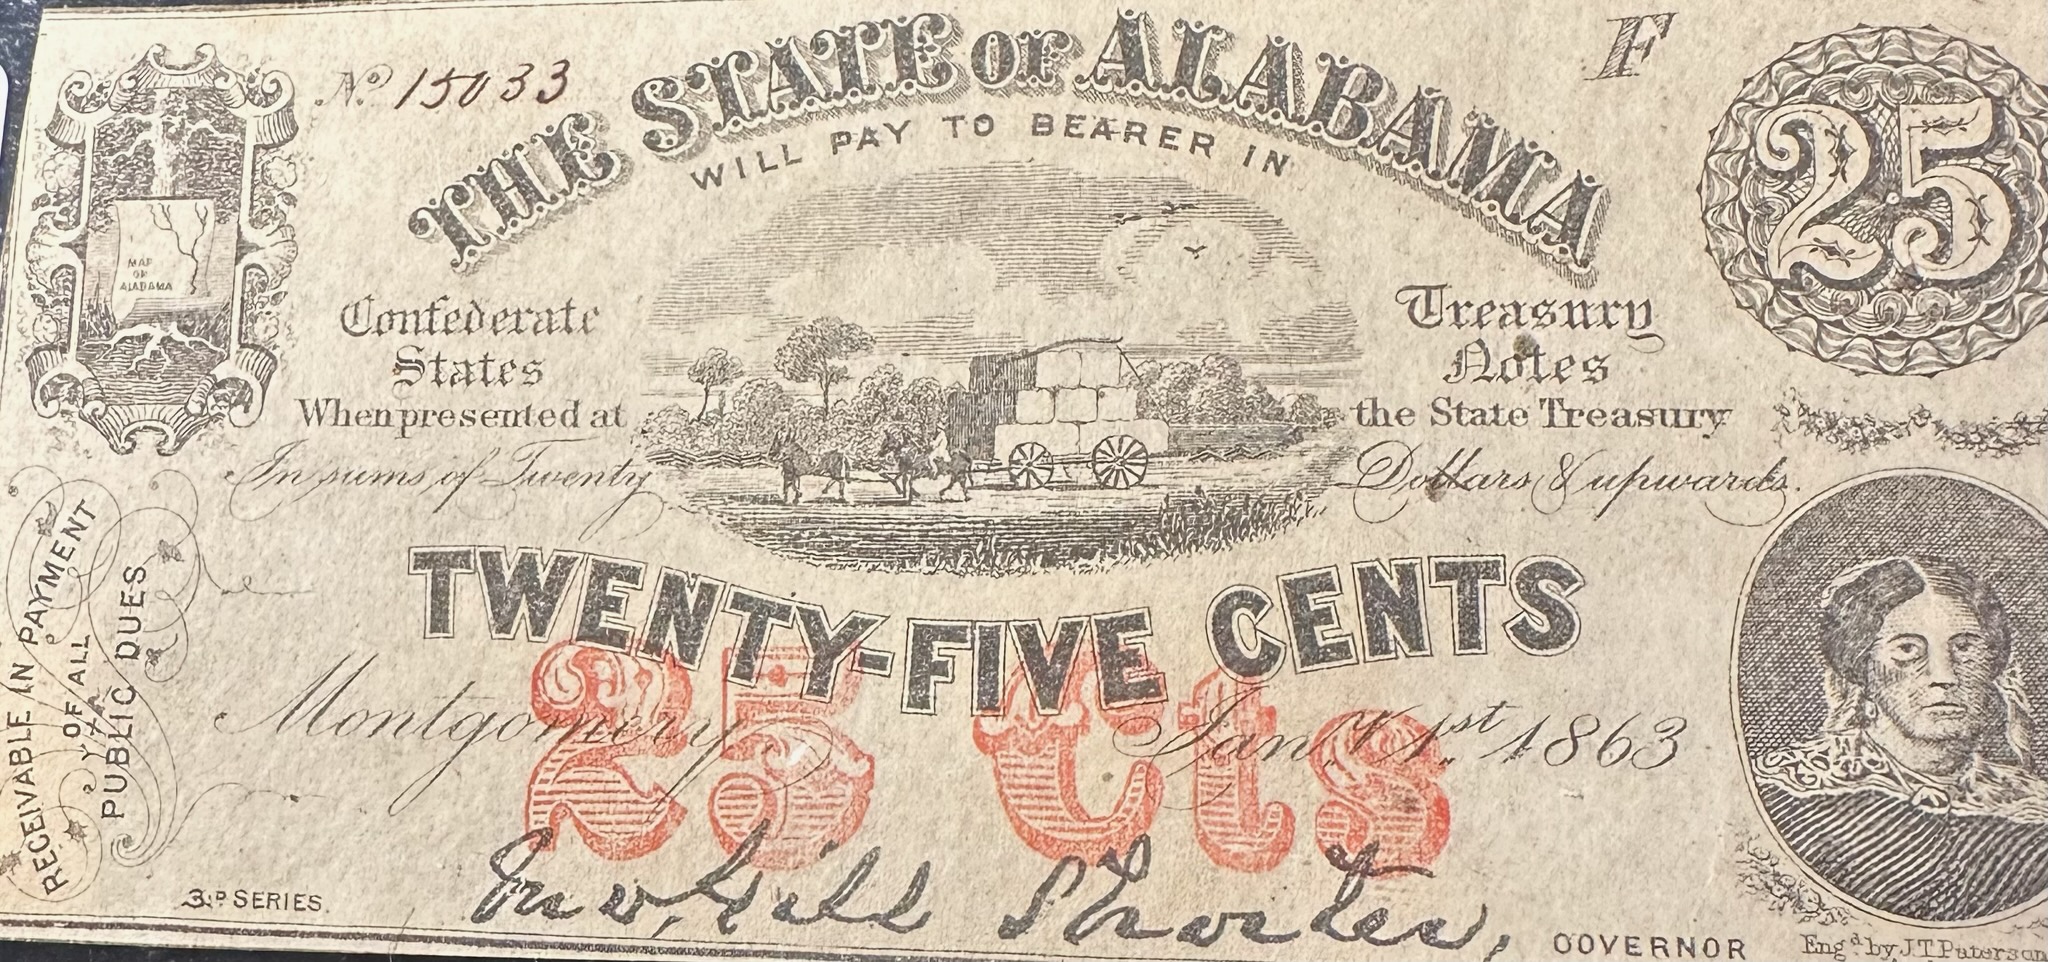 No. 15033
THE STATE OF ALABAMA
F
25
WILL PAY TO BEARER IN
MAP
OF
ALABAMA
Confederate
States
When presented at
Treasury
Notes
the State Treasury
In sums of Twenty Dollars & upwards.
TWENTY-FIVE CENTS
25 Cts
Montgomery, Jan. 1st 1863
RECEIVABLE IN PAYMENT
OF ALL
PUBLIC DUES
3.D SERIES.
Jno, Gill Shorter,
GOVERNOR
Engd. by J.T Paterson